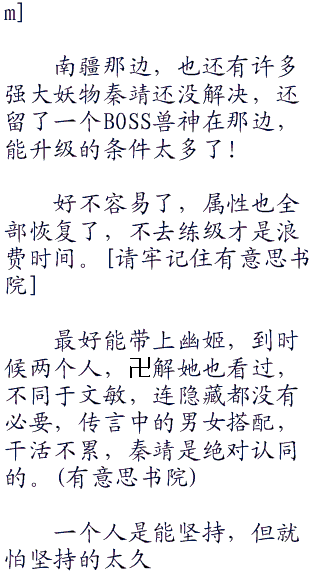 m]
南疆那边，也还有许多
强大妖物秦靖还没解决，还
留了一个BOSS兽神在那边，
能升级的条件太多了！
好不容易了，属性也全
部恢复了，不去练级才是浪
费时间。[请牢记住有意思书
院]
最好能带上幽姬，到时
候两个人，卍解她也看过，
不同于文敏，连隐藏都没有
必要，传言中的男女搭配，
干活不累，秦靖是绝对认同
的。(有意思书院)
一个人是能坚持，但就
怕坚持的太久